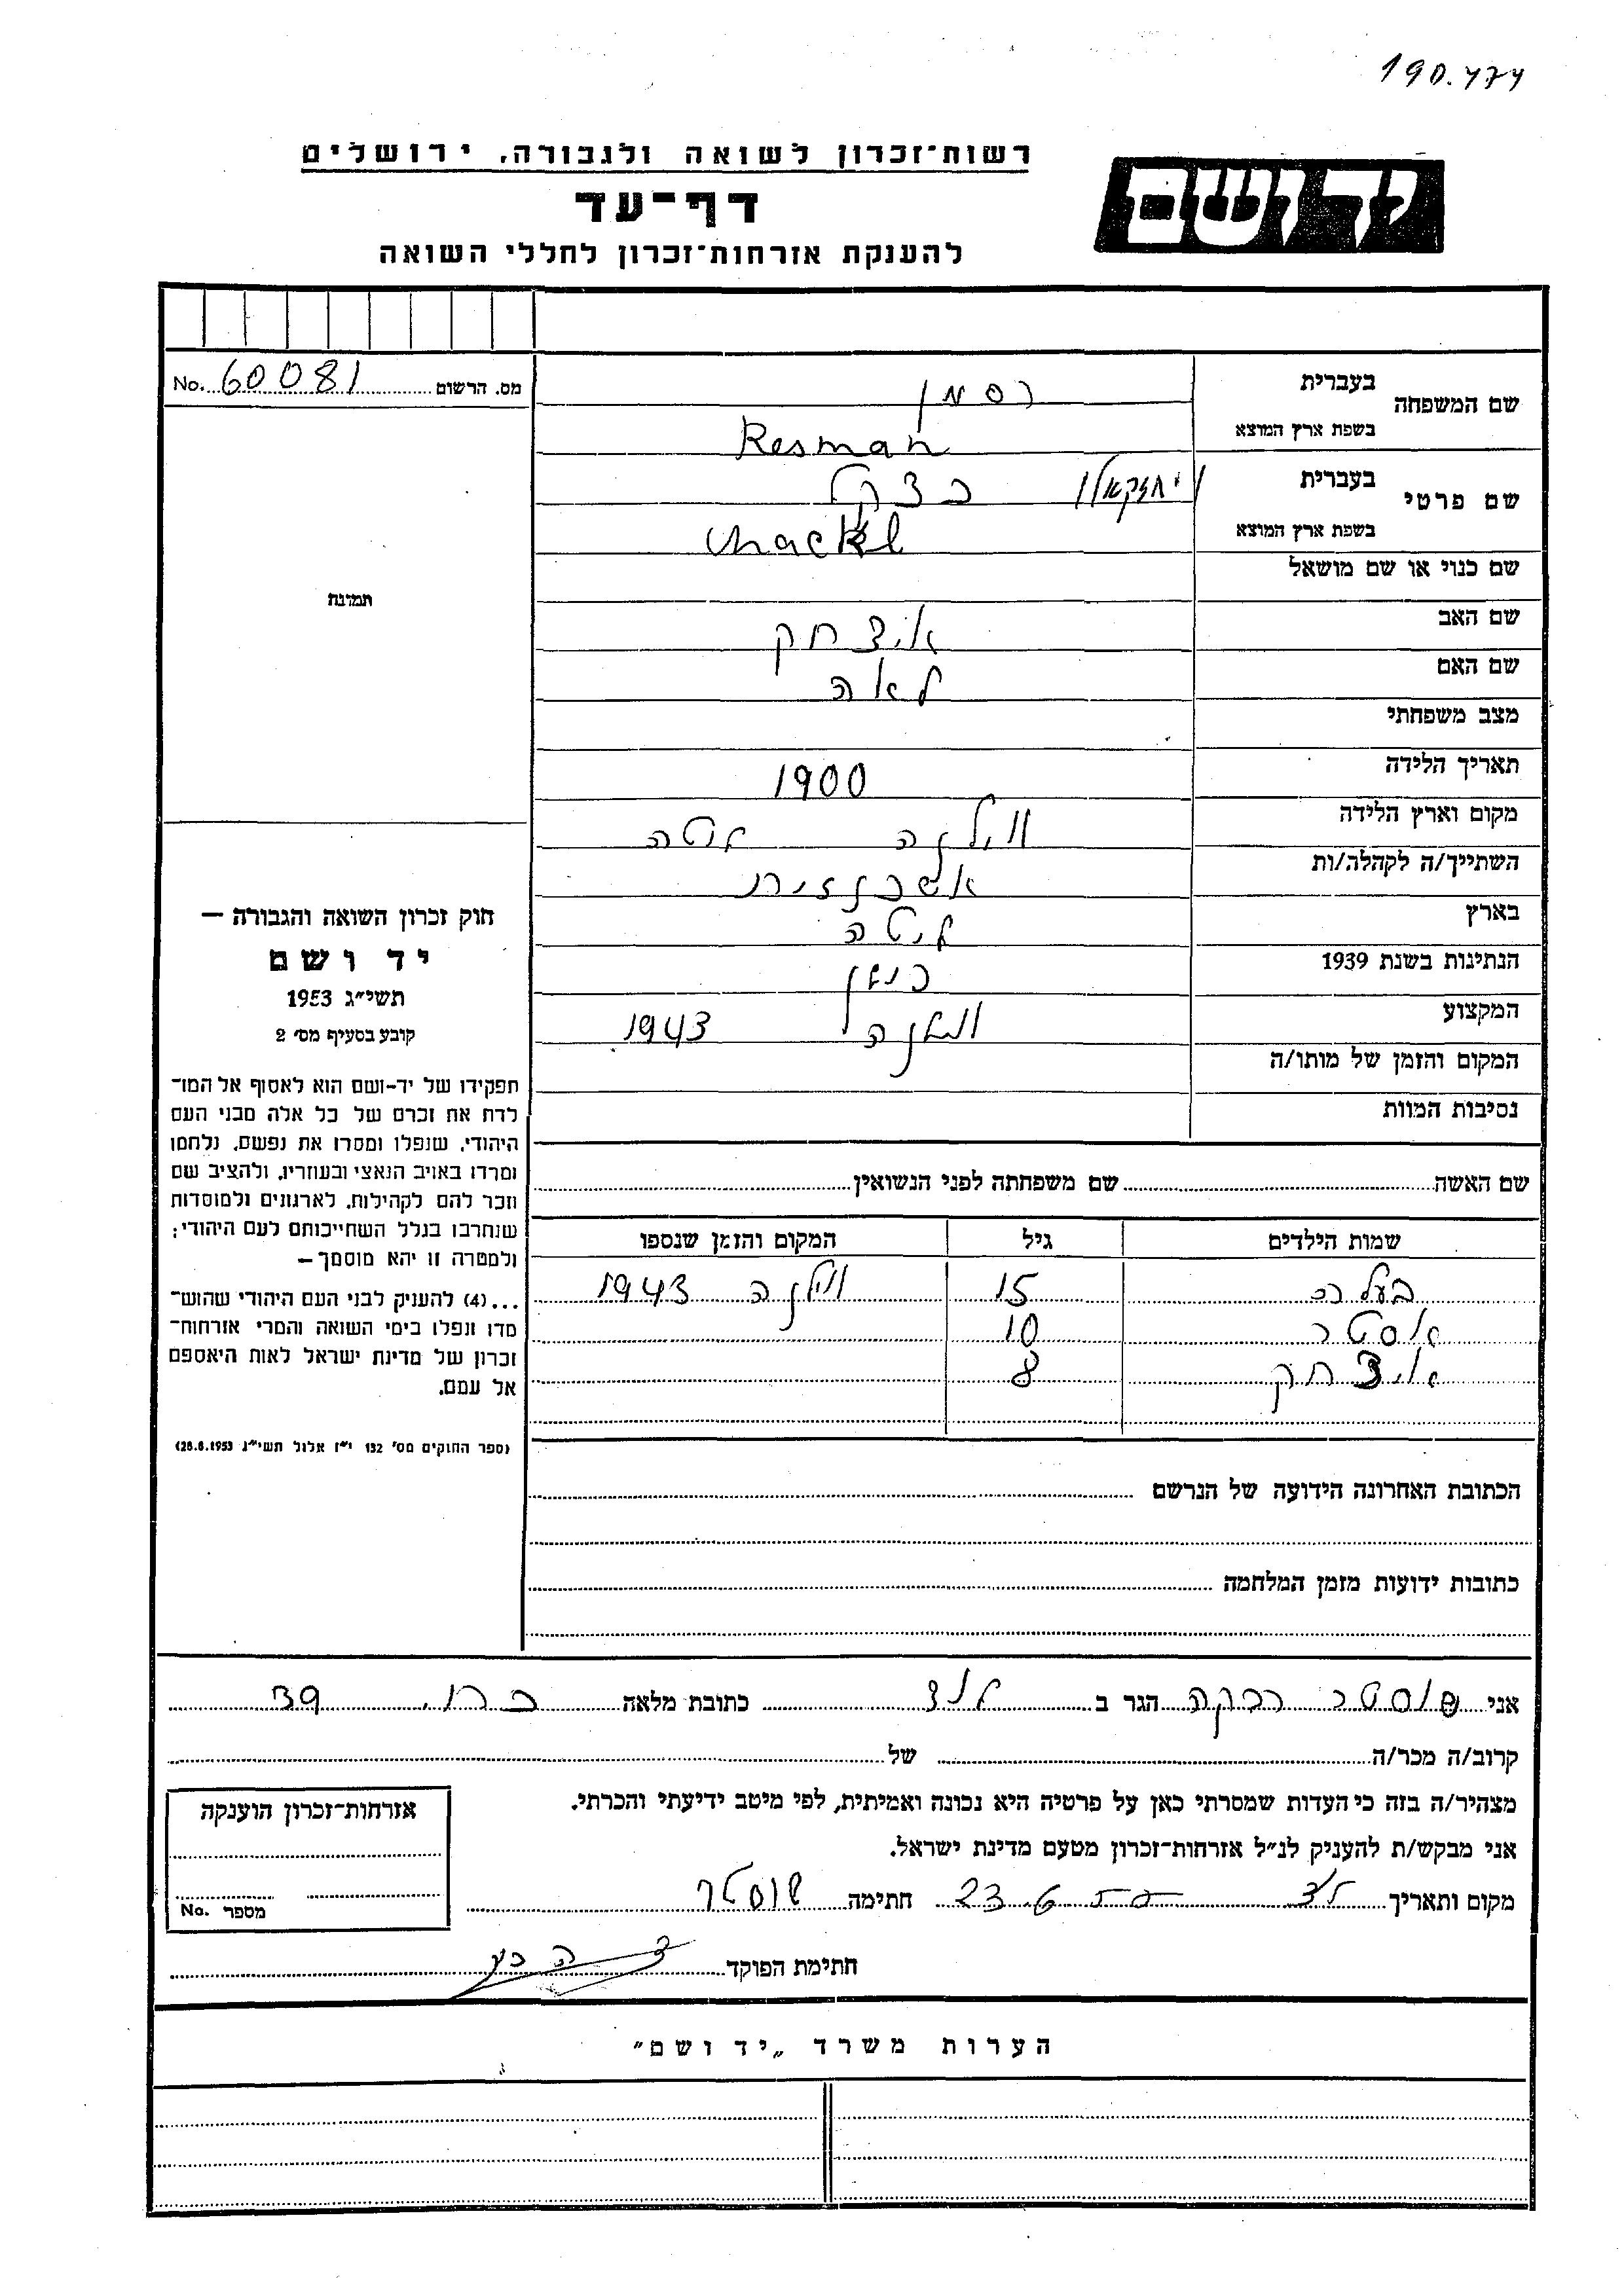 190.474
רשות־זכרון לשואה ולגבורה, ירושלים
יד ושם
דף־עד
להענקת אזרחות־זכרון לחללי השואה
מס. הרשום 60081 No.
שם המשפחה
בעברית רסמן
בשפת ארץ המוצא Resman
שם פרטי
בעברית /יחזקאל/
בשפת ארץ המוצא
שם כנוי או שם מושאל
שם האב איצחק
שם האם לאה
מצב משפחתי
תאריך הלידה 1900
מקום וארץ הלידה ווילנה ליטה
השתייך/ה לקהלה/ות אשכנזית
בארץ ליטה
הנתינות בשנת 1939
המקצוע
המקום והזמן של מותו/ה 1943
נסיבות המוות
תמונה
חוק זכרון השואה והגבורה —
יד ושם
תשי״ג 1953
קובע בסעיף מס׳ 2
תפקידו של יד־ושם הוא לאסוף אל המו־
לדת את זכרם של כל אלה מבני העם
היהודי, שנפלו ומסרו את נפשם, נלחמו
ומרדו באויב הנאצי ובעוזריו, ולהציב שם
וזכר להם לקהילות, לארגונים ולמוסדות
שנחרבו בגלל השתייכותם לעם היהודי;
ולמטרה זו יהא מוסמך—
...(4) להעניק לבני העם היהודי שהוש־
מדו ונפלו בימי השואה והמרי אזרחות־
זכרון של מדינת ישראל לאות היאספם
אל עמם.
(ספר החוקים מס׳ 132 י״ז אלול תשי״ג 28.8.1953)
שם האשה שם משפחתה לפני הנשואין
שמות הילדים גיל המקום והזמן שנספו
15 ווילנה 1943
אסטר 10
איצחק 8
הכתובת האחרונה הידועה של הנרשם
כתובות ידועות מזמן המלחמה
אני שוסטר רבקה הגר ב כתובת מלאה 39
קרוב/ה מכר/ה של
מצהיר/ה בזה כי העדות שמסרתי כאן על פרטיה היא נכונה ואמיתית, לפי מיטב ידיעתי והכרתי.
אני מבקש/ת להעניק לנ״ל אזרחות־זכרון מטעם מדינת ישראל.
מקום ותאריך 23 חתימה שוסטר
אזרחות־זכרון הוענקה
מספר No.
חתימת הפוקד
הערות משרד „יד ושם״